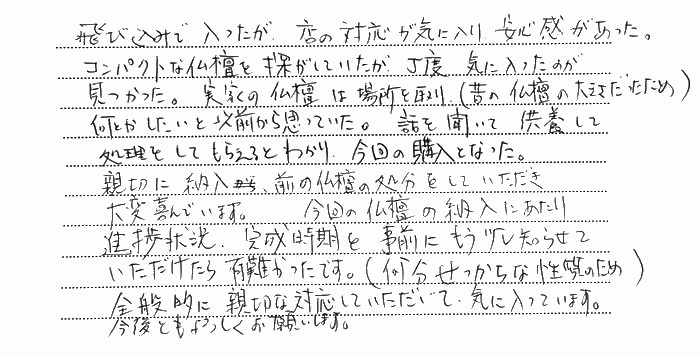 飛び込みで入ったが、店の対応が気に入り安心感があった。
コンパクトな仏壇を探がしていたが丁度気に入ったのが
見つかった。実家の仏壇は場所を取り(昔の仏壇の大きさだったため)
何とかしたいと以前から思っていた。話を聞いて供養して
処理をしてもらえるとわかり、今回の購入となった。
親切に納入、前の仏壇の処分をしていただき
大変喜んでいます。 今回の仏壇の納入にあたり
進捗状況、完成時期を事前にもう少し知らせて
いただけたら有難かったです。(何分せっかちな性質のため)
全般的に親切な対応していただいて、気に入っています。
今後ともよろしくお願いします。